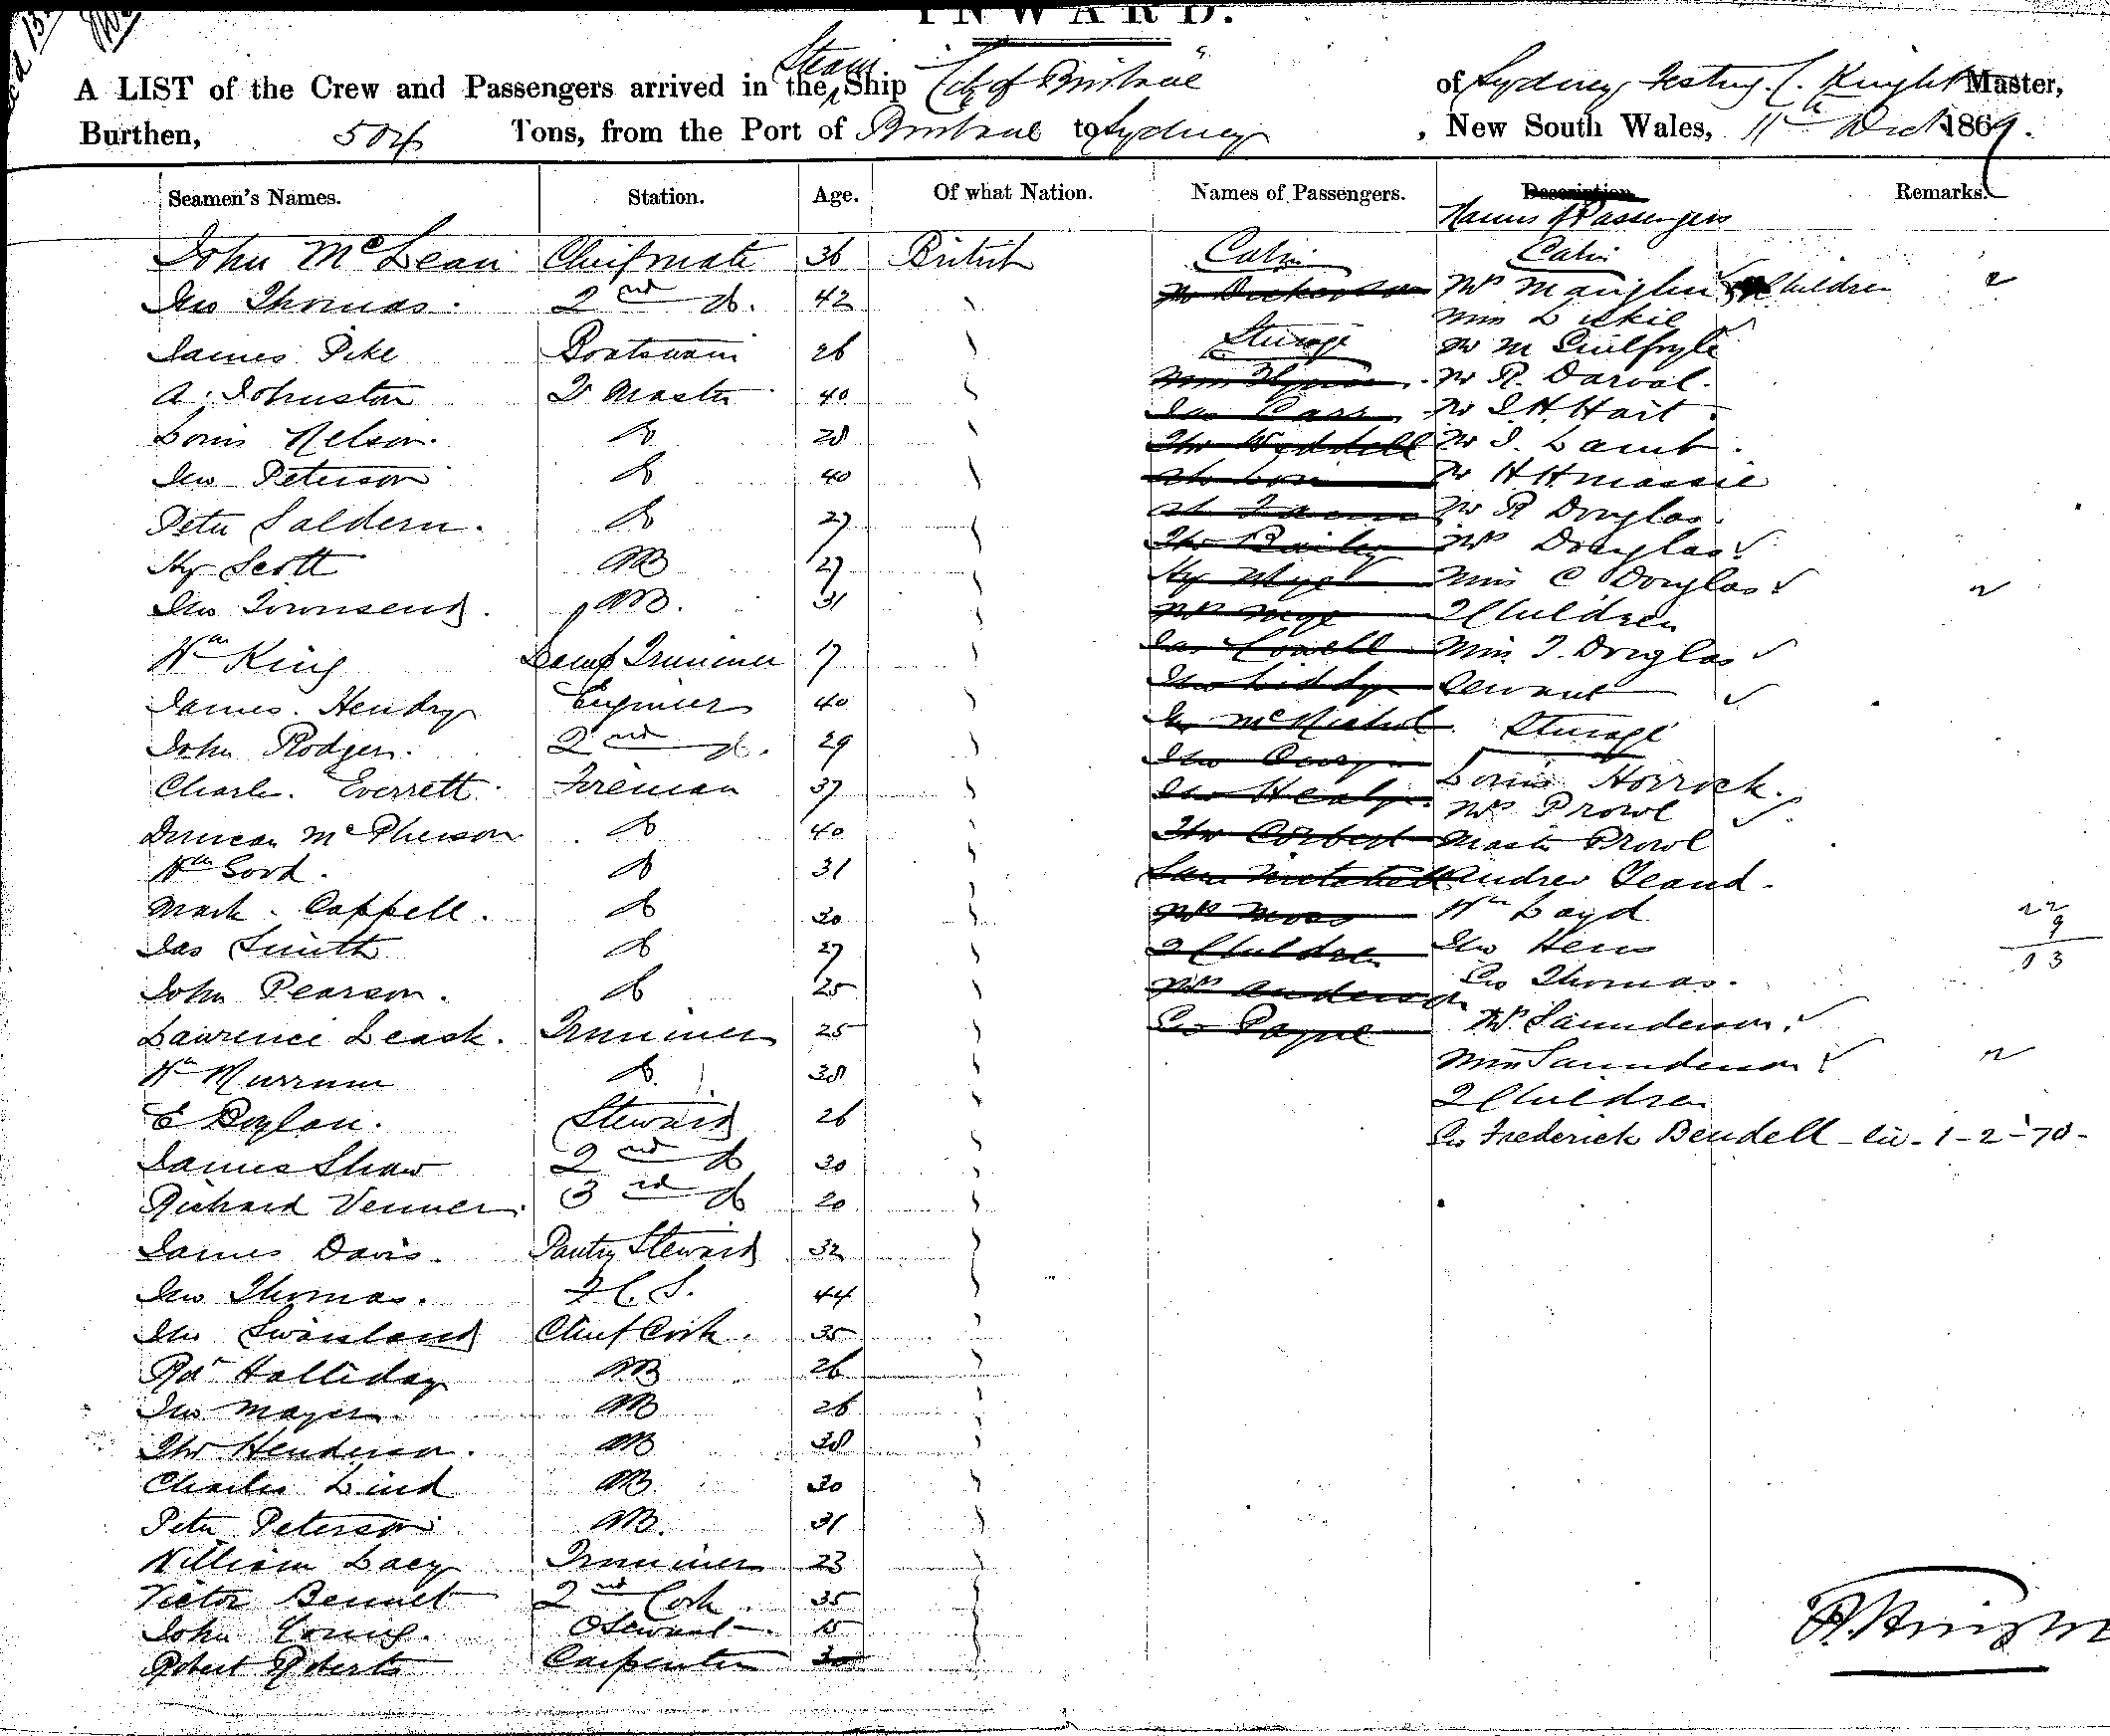 INWARD.
A LIST of the Crew and Passengers arrived in the Steam Ship "City of Brisbane" of Sydney Knight Master,
Burthen, 504 Tons, from the Port of Brisbane to Sydney, New South Wales, 11th Decr 1869.
Seamen's Names. Station. Age. Of what Nation. Names of Passengers. Description Remarks.
Names of Passengers
John McLean Chief mate 36 British Cabin Cabin
Jno Thomas. 2nd do. 42 Mrs Children 2
Miss
James Pike Boatswain 26 Steerage Mr M Guilfoyle
A. Johnston Q Master 40 Mr R. Darval.
Jas Carr Mr J. H. Hart.
Louis Nelson. do 28 Thos Weddell Mr J. Lamb.
Jno Peterson do 40 Mr H H Massie
Peter Saldern. do 27 Mr R Douglas.
Thos Bailey Mrs Douglas
Hy Scott AB 27 Miss C Douglas
Jno Townsend. AB. 31 2 Children 2
Wm King Lamp Trimmer 17 Miss J. Douglas
Jno Liddy Servant
James. Hendry Engineer 40 Steerage
John Rodger. 2nd do. 29 Louis Horrock.
Charles. Everrett. Fireman 37 Jno Healy Mrs Prowl
Duncan McPherson do 40 Thos Corbert Master Prowl
Wm Good. do 31 Andrew
Mark. Cappell. do 30 Mrs Moss Wm Loyd 22
9
Jas Smith do 27 2 Children Jno Hens
John Pearson. do 25 Mrs Anderson Geo Thomas.
Lawrence Leask. Trimmer 25 Geo Payne Mrs Saunderson.
Wm do. 38 Miss Saunderson 2
E Boylan. Steward 26 2 Children
Geo Frederick Bendell - - 1-2-70-
James Shaw 2nd do 30
Richard Venner. 3rd do 20
James Davis. Pantry Steward 32
Jno Thomas. F. C. S. 44
Jno Swainland Chief Cook. 35
Rd Halliday AB 26
Jno Mayer AB 26
Thos Henderson. AB 38
Charles Lind AB 30
Peter Peterson AB. 31
William Lacy Trimmer 23
Victor Bennet 2nd Cook. 35
John Young. 15
Robert Roberts Carpenter 30
Knight